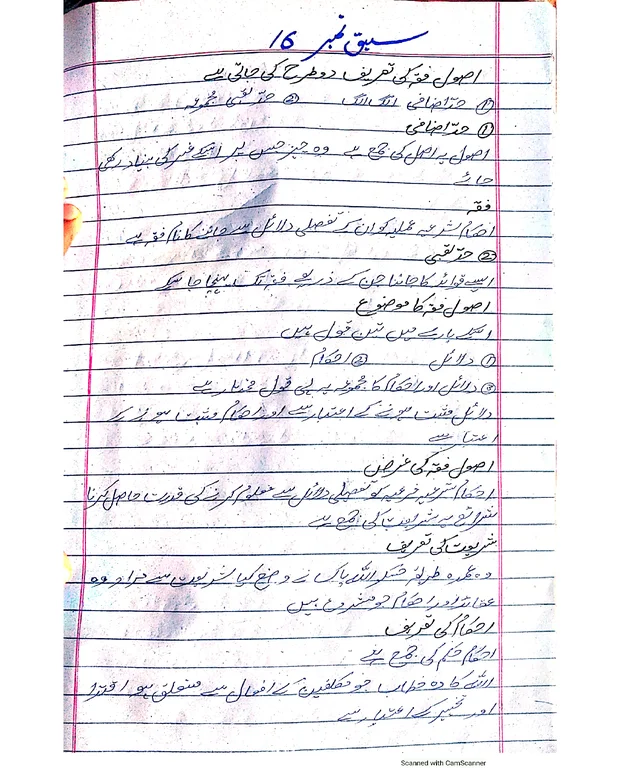 سبق نمبر 16
اصول فقہ کی تعریف دو طرح کی جاتی ہے
① حد اضافی الگ الگ ② حد لقبی مجموعہ
① حد اضافی
اصول یہ اصل کی جمع ہے وہ چیز جس پر اسکے غیر کی بنیاد رکھی
جائے
فقہ
احکام شرعیہ عملیہ کو ان کے تفصیلی دلائل سے جاننے کا نام فقہ ہے
② حد لقبی
ایسے قوائد کا جاننا جن کے ذریعے فقہ تک پہنچا جا سکے
اصول فقہ کا موضوع
اسکے بارے میں تین قول ہیں
① دلائل ② احکام
③ دلائل اور احکام کا مجموعہ یہ ہی قول مختار ہے
دلائل مثبت ہونے کے اعتبار سے اور احکام مثبت ہونے کے
اعتبار سے
اصول فقہ کی غرض
احکام شرعیہ فرعیہ کو تفصیلی دلائل سے معلوم کرنے کی قدرت حاصل کرنا
شرائع یہ شریعت کی جمع ہے
شریعت کی تعریف
وہ عمدہ طریقہ جسکو اللہ پاک نے وضع کیا شریعت سے مراد وہ
عقائد اور احکام جو مشروع ہیں
احکام کی تعریف
احکام حکم کی جمع ہے
اللہ کا وہ خطاب جو مکلفین کے افعال سے متعلق ہو اقتضا
اور تخییر کے اعتبار سے
Scanned with CamScanner